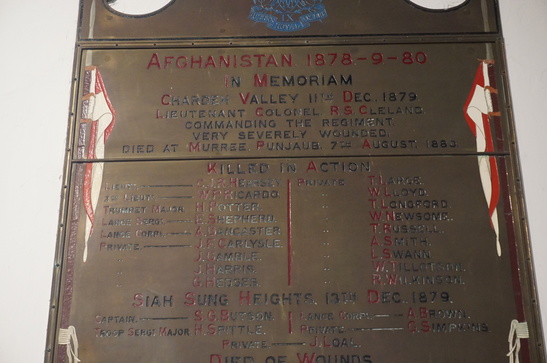 AFGHANISTAN 1878-9-80
IN MEMORIAM
CHARDEH VALLEY 11TH DEC. 1879
LIEUTENANT COLONEL R.S. CLELAND
COMMANDING THE REGIMENT
VERY SEVERELY WOUNDED.
DIED AT MURREE PUNJAUB. 7TH AUGUST 1880.
KILLED IN ACTION
LIEUT. C.J.W. HEARSEY. PRIVATE T. LARGE.
2ND LIEUT. RICARDO. W. LLOYD.
TRUMPET MAJOR H. POTTER. T. LONGFORD.
LANCE SERGT. SHEPHERD. W. NEWSOME.
LANCE CORPL. A. LANCASTER T. RUSSELL.
PRIVATE J.F. CARLYSLE. A. SMITH.
J. GAMBLE. SWANN.
J. HARRIS. W. TILLOTSON.
G. HERGER. WILKINSON.
SIAH SUNG HEIGHTS. 13TH DEC. 1879.
CAPTAIN. S.G. BUTSON. LANCE CORPL. A. BROWN.
TROOP SERGT MAJOR H. SPITTLE. PRIVATE SIMPKINS
PRIVATE J. LOAL.
DIED OF WOUNDS